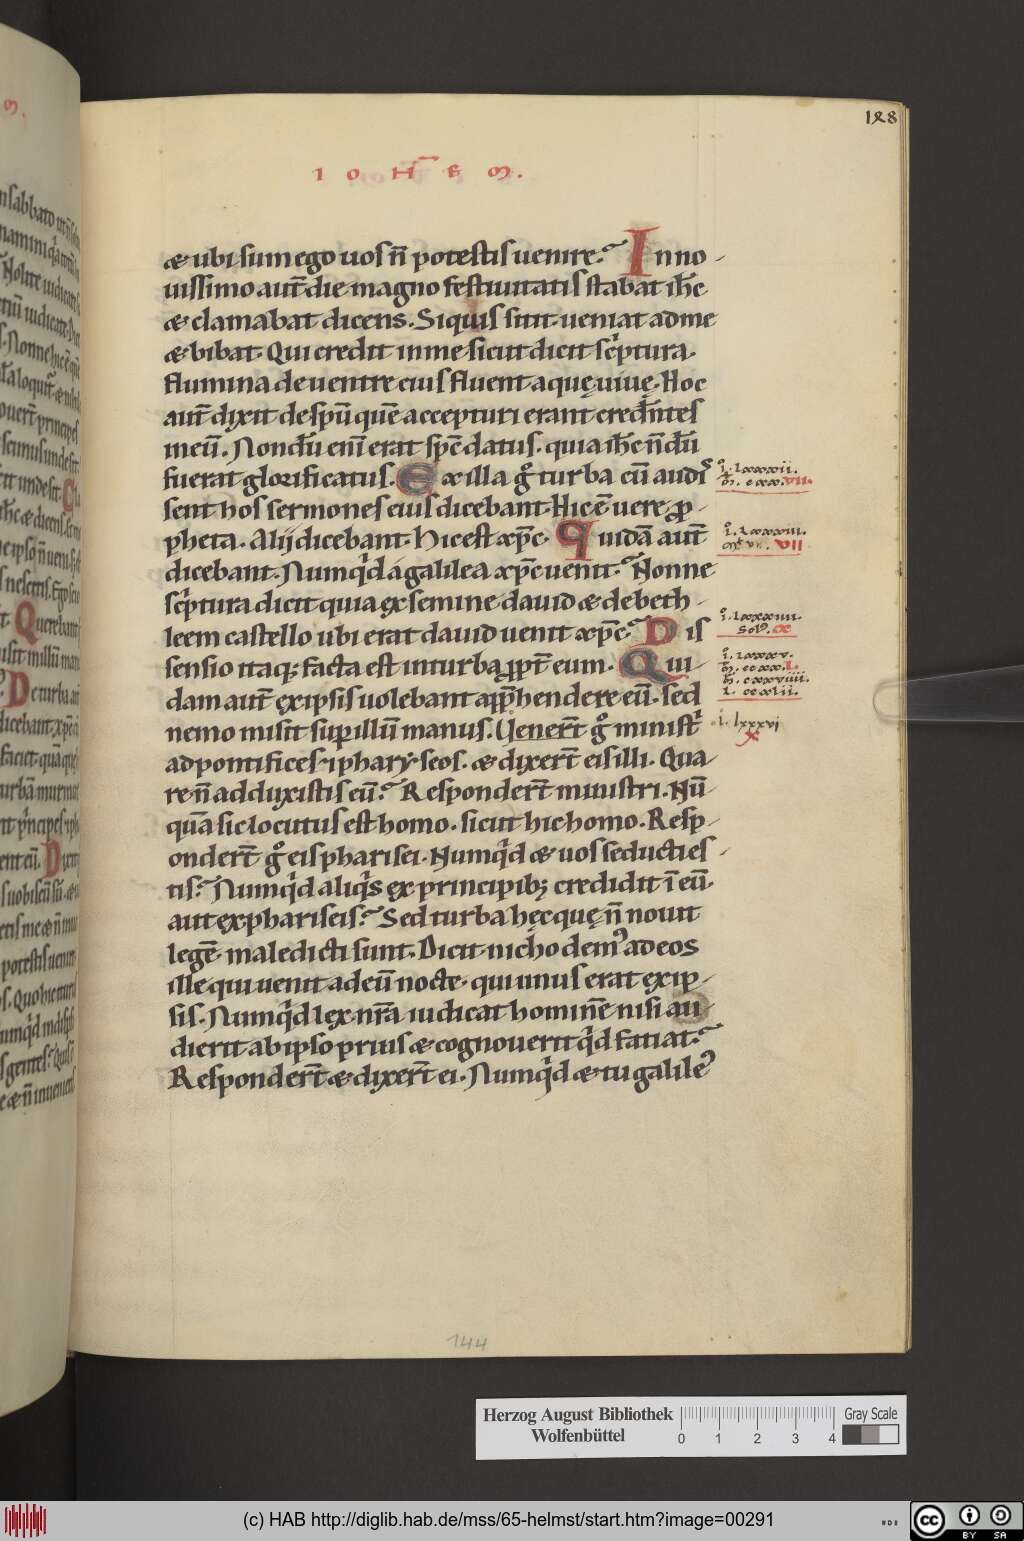 128
IOH̅EM.
& ubi sum ego uos n̅ potestis uenire? Inno-
uissimo aut̅ die magno festiuitatis stabat ih̅c
& clamabat dicens. Siquis sitit. ueniat adme
& bibat. Qui credit inme sicut dicit sc̅ptura.
flumina deuentre eius fluent aquę uiuę. Hoc
aut̅ dixit despu̅ que̅ accepturi erant cred̅ntes
ineu̅. Nondu̅ eni̅ erat sp̅c datus. quia ih̅c n̅du̅
fuerat glorificatus. Ex illa g̊ turba cu̅ audi
sent hos sermones eius dicebant. Hic e̅ uere ꝓ-
pheta. Alij dicebant. Hic est xp̅c. Quida̅ aut̅
dicebant. Numqͥd á galilea xp̅c uenit? Nonne
sc̅ptura dicit quia ex semine dauid & debeth-
leem castello ubi erat dauid uenit xp̅c? Dis
sensio itaq; facta est inturba ꝓpt̅ eum. Qui-
dam aut̅ ęxipsis uolebant app̅hendere eu̅. sed
nemo misit suꝑ illu̅ manus. Uenert̅ g̊ ministͥ
ad pontifices. iphary.seos. & dixert̅ eis illi. Qua-
re n̅ adduxistis eu̅? Respondert̅ ministri. Nu̅-
qua̅ sic locutus est homo. sicut hic homo. Resp-
ondert̅ g̊ eis pharisei. Numqͥd & uos seducties-
tis? Numqͥd aliqͥs ęx principib; credidit i̅ eu̅.
aut ęxphariseis? Sed turba hęc quę n̅ nouit
lege̅ maledicti sunt. Dicit nichodemꝰ ad eos
ille qui uenit ad eu̅ nocte. qui unus erat ęxip-
sis. Numqͥd lex nr̅a iudicat homine̅ nisi au-
dierit ab ipso prius & cognouerit qͥd fatiat?
Respondert̅ & dixert̅ ei. Numqͥd & tu galileꝰ
144
Herzog August Bibliothek
Wolfenbüttel
0 1 2 3 4
Gray Scale
(c) HAB http://diglib.hab.de/mss/65-helmst/start.htm?image=00291
cc BY SA